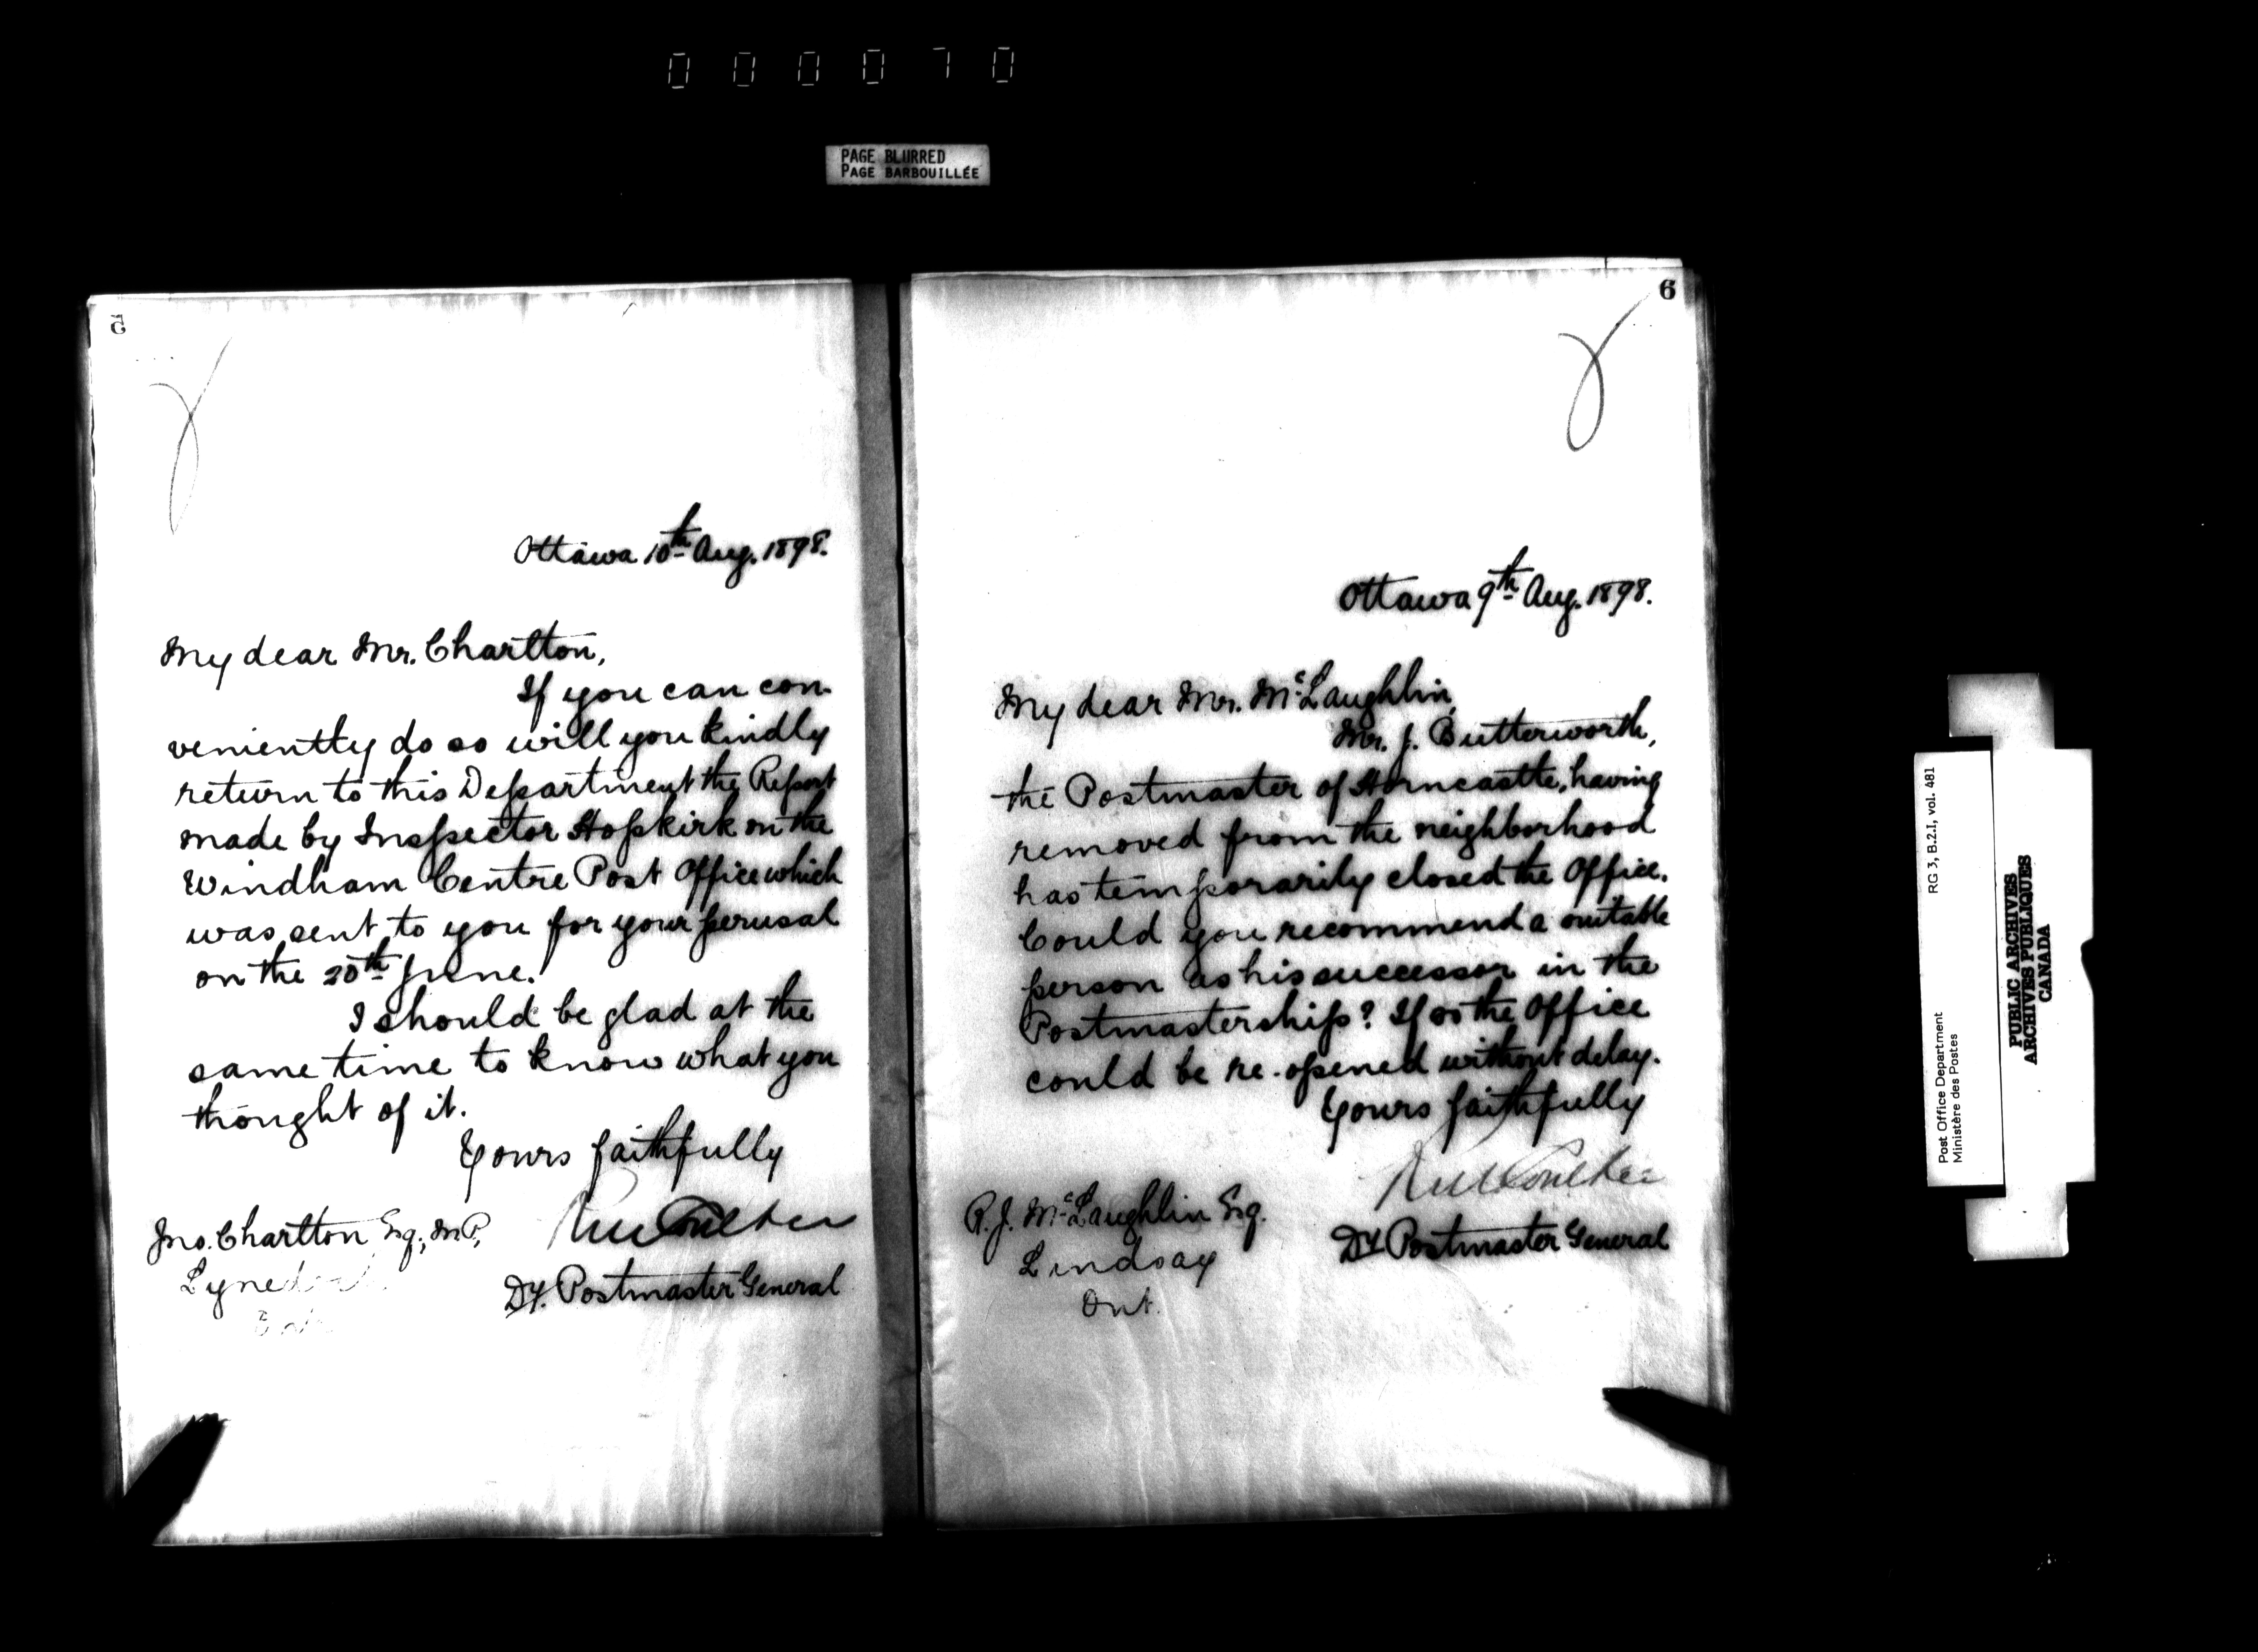 000070
PAGE BLURRED
PAGE BARBOUILLÉE
5
Ottawa 10th Aug. 1898.
My dear Mr. Charlton,
If you can con-
veniently do so will you kindly
return to this Department the Report
made by Inspector Hopkirk on the
Windham Centre Post Office which
was sent to you for your perusal
on the 20th June.
I should be glad at the
same time to know what you
thought of it.
Yours faithfully
RM Coulter
Dy. Postmaster General
Jno. Charlton Esq., M.P.,
6
Ottawa 9th Aug. 1898.
My dear Mr. McLaughlin,
Mr. J. Butterworth,
the Postmaster of Horncastle, having
removed from the neighborhood
has temporarily closed the Office.
Could you recommend a suitable
person as his successor in the
Postmastership? If so the Office
could be re-opened without delay.
Yours faithfully
RM Coulter
Dy Postmaster General
R. J. McLaughlin Esq.
Lindsay
Ont.
RG 3, B.2.I, vol. 481
Post Office Department
Ministère des Postes
PUBLIC ARCHIVES
ARCHIVES PUBLIQUES
CANADA